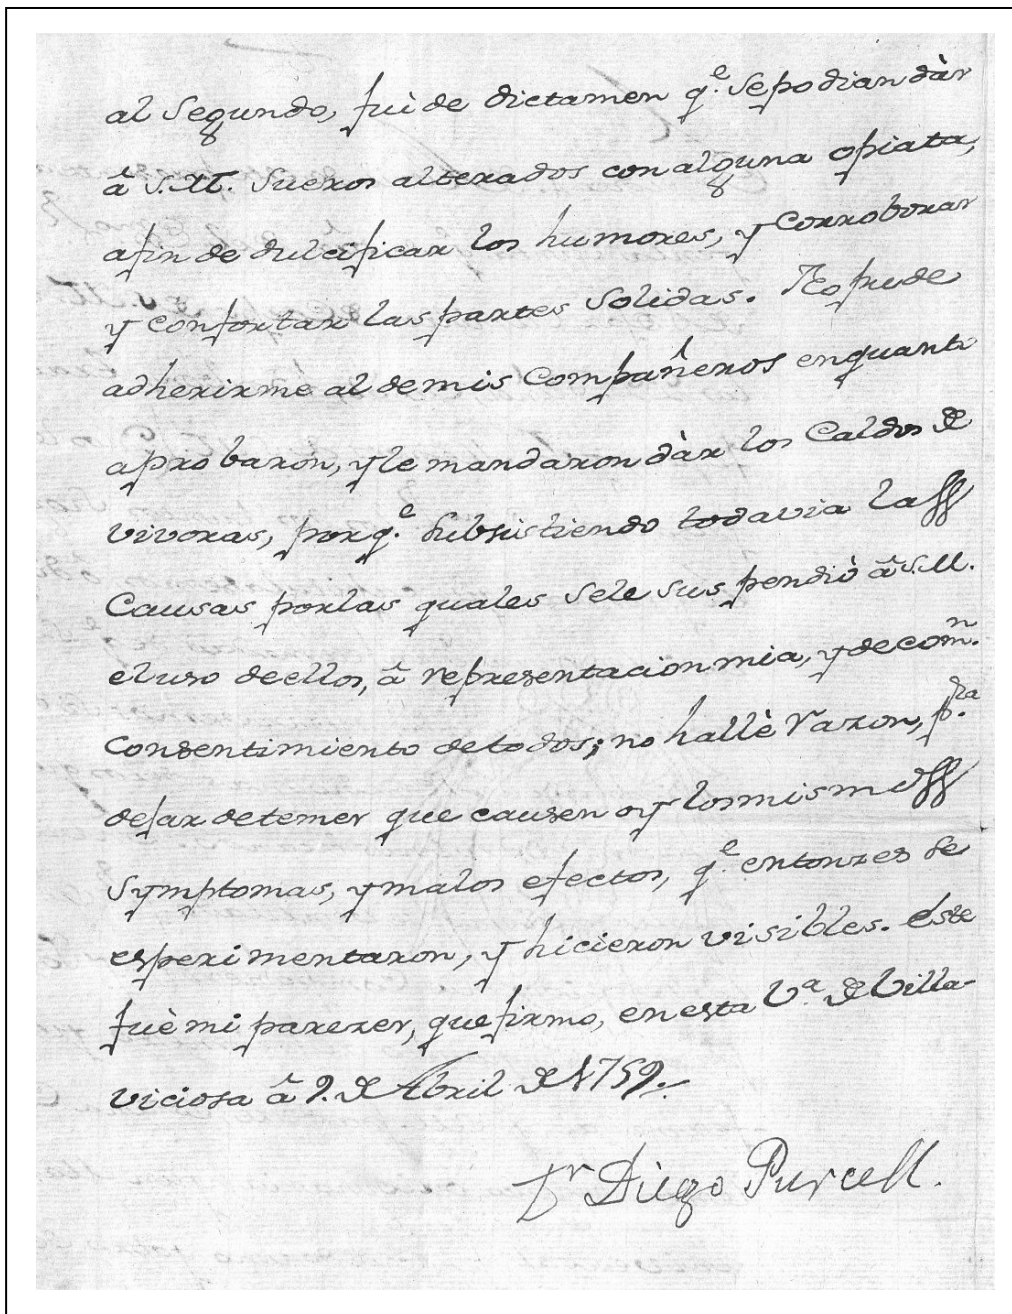 al Segundo, fuè de dictamen q.e Se podian dàr
â S.M. Sueros alterados con alguna opiata,
afin de dulcificar los humores, y Corroborar
y confortar las partes Solidas. No pude
adherirme al de mis Compañeros en quanto
aprobaron, y le mandaron dàr los Caldos de
vivoras, porq.e Subsistiendo todavia las
Causas por las quales Sele suspendiò â S.M.
el uso de ellos, â representacion mia, y de com.n
Consentimiento de todos; no hallè razon, p.ra
dejar de temer que causen oy los mismos
Symptomas, y malos efectos, q.e entonzes se
esperimentaron, y hicieron visibles. Este
fuè mi parezer, que firmo, en esta V.a de Villa-
viciosa â 9. de Abril de 1759.
D.r Diego Purcell.